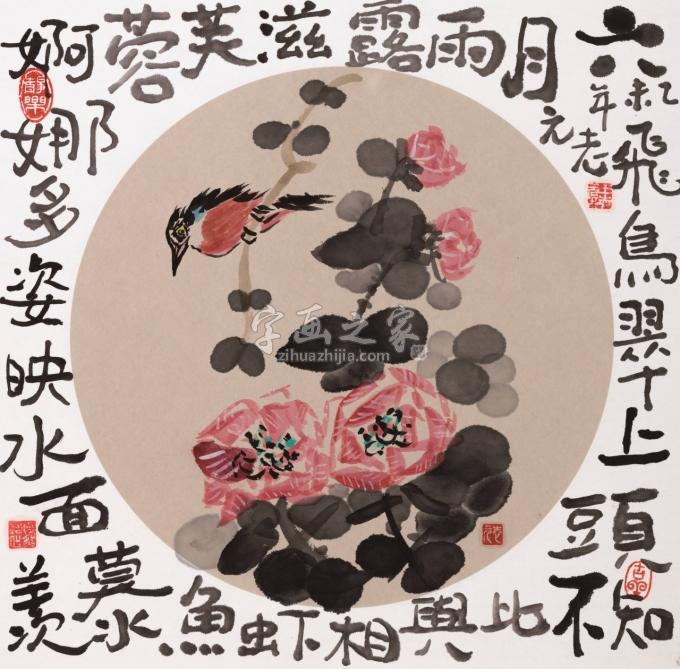 六月雨露滋芙蓉
婀娜多姿映水面
羡慕水魚虾相與比
不知頭上翠鳥飛
乙未年元老
字画之家
zihuazhijia.com